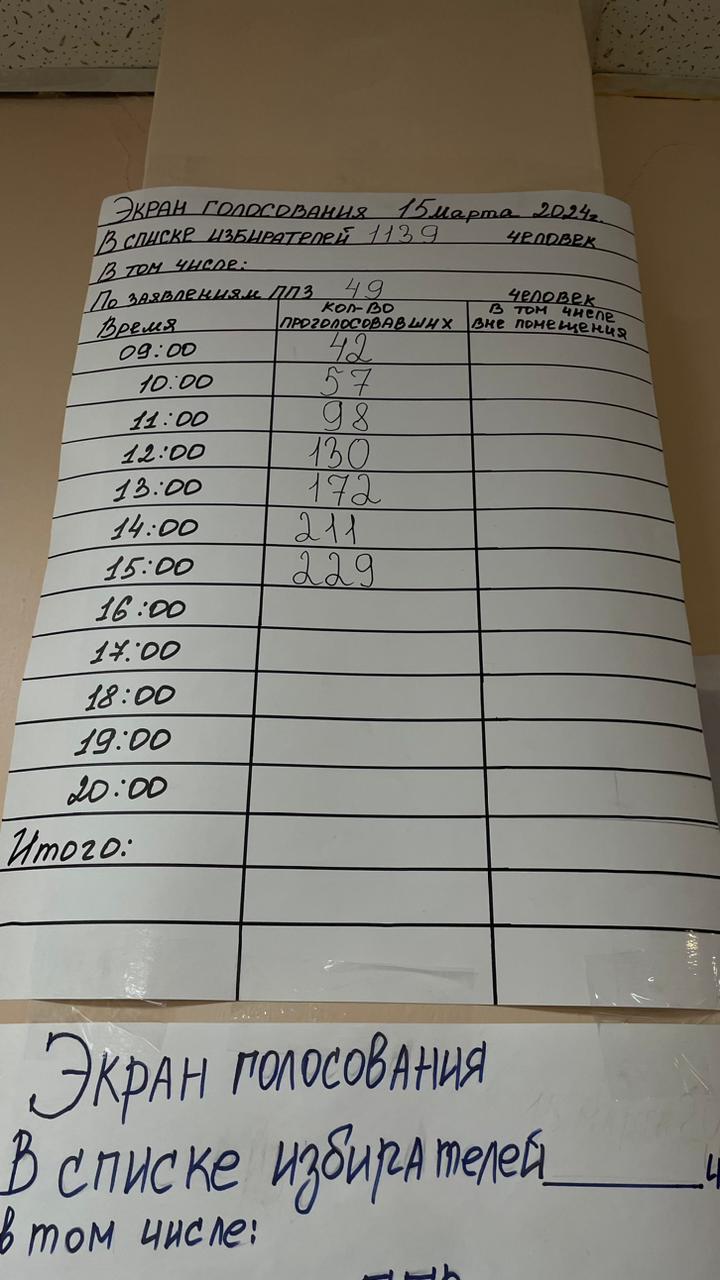 ЭКРАН ГОЛОСОВАНИЯ 15 марта 2024г.
В СПИСКЕ ИЗБИРАТЕЛЕЙ 1139 ЧЕЛОВЕК
В ТОМ ЧИСЛЕ:
ПО ЗАЯВЛЕНИЯМ ППЗ 49 ЧЕЛОВЕК
Время КОЛ-ВО ПРОГОЛОСОВАВШИХ В ТОМ ЧИСЛЕ ВНЕ ПОМЕЩЕНИЯ
09:00 42
10:00 57
11:00 98
12:00 130
13:00 172
14:00 211
15:00 229
16:00
17:00
18:00
19:00
20:00
Итого:
Экран голосования
В списке избирателей
в том числе: